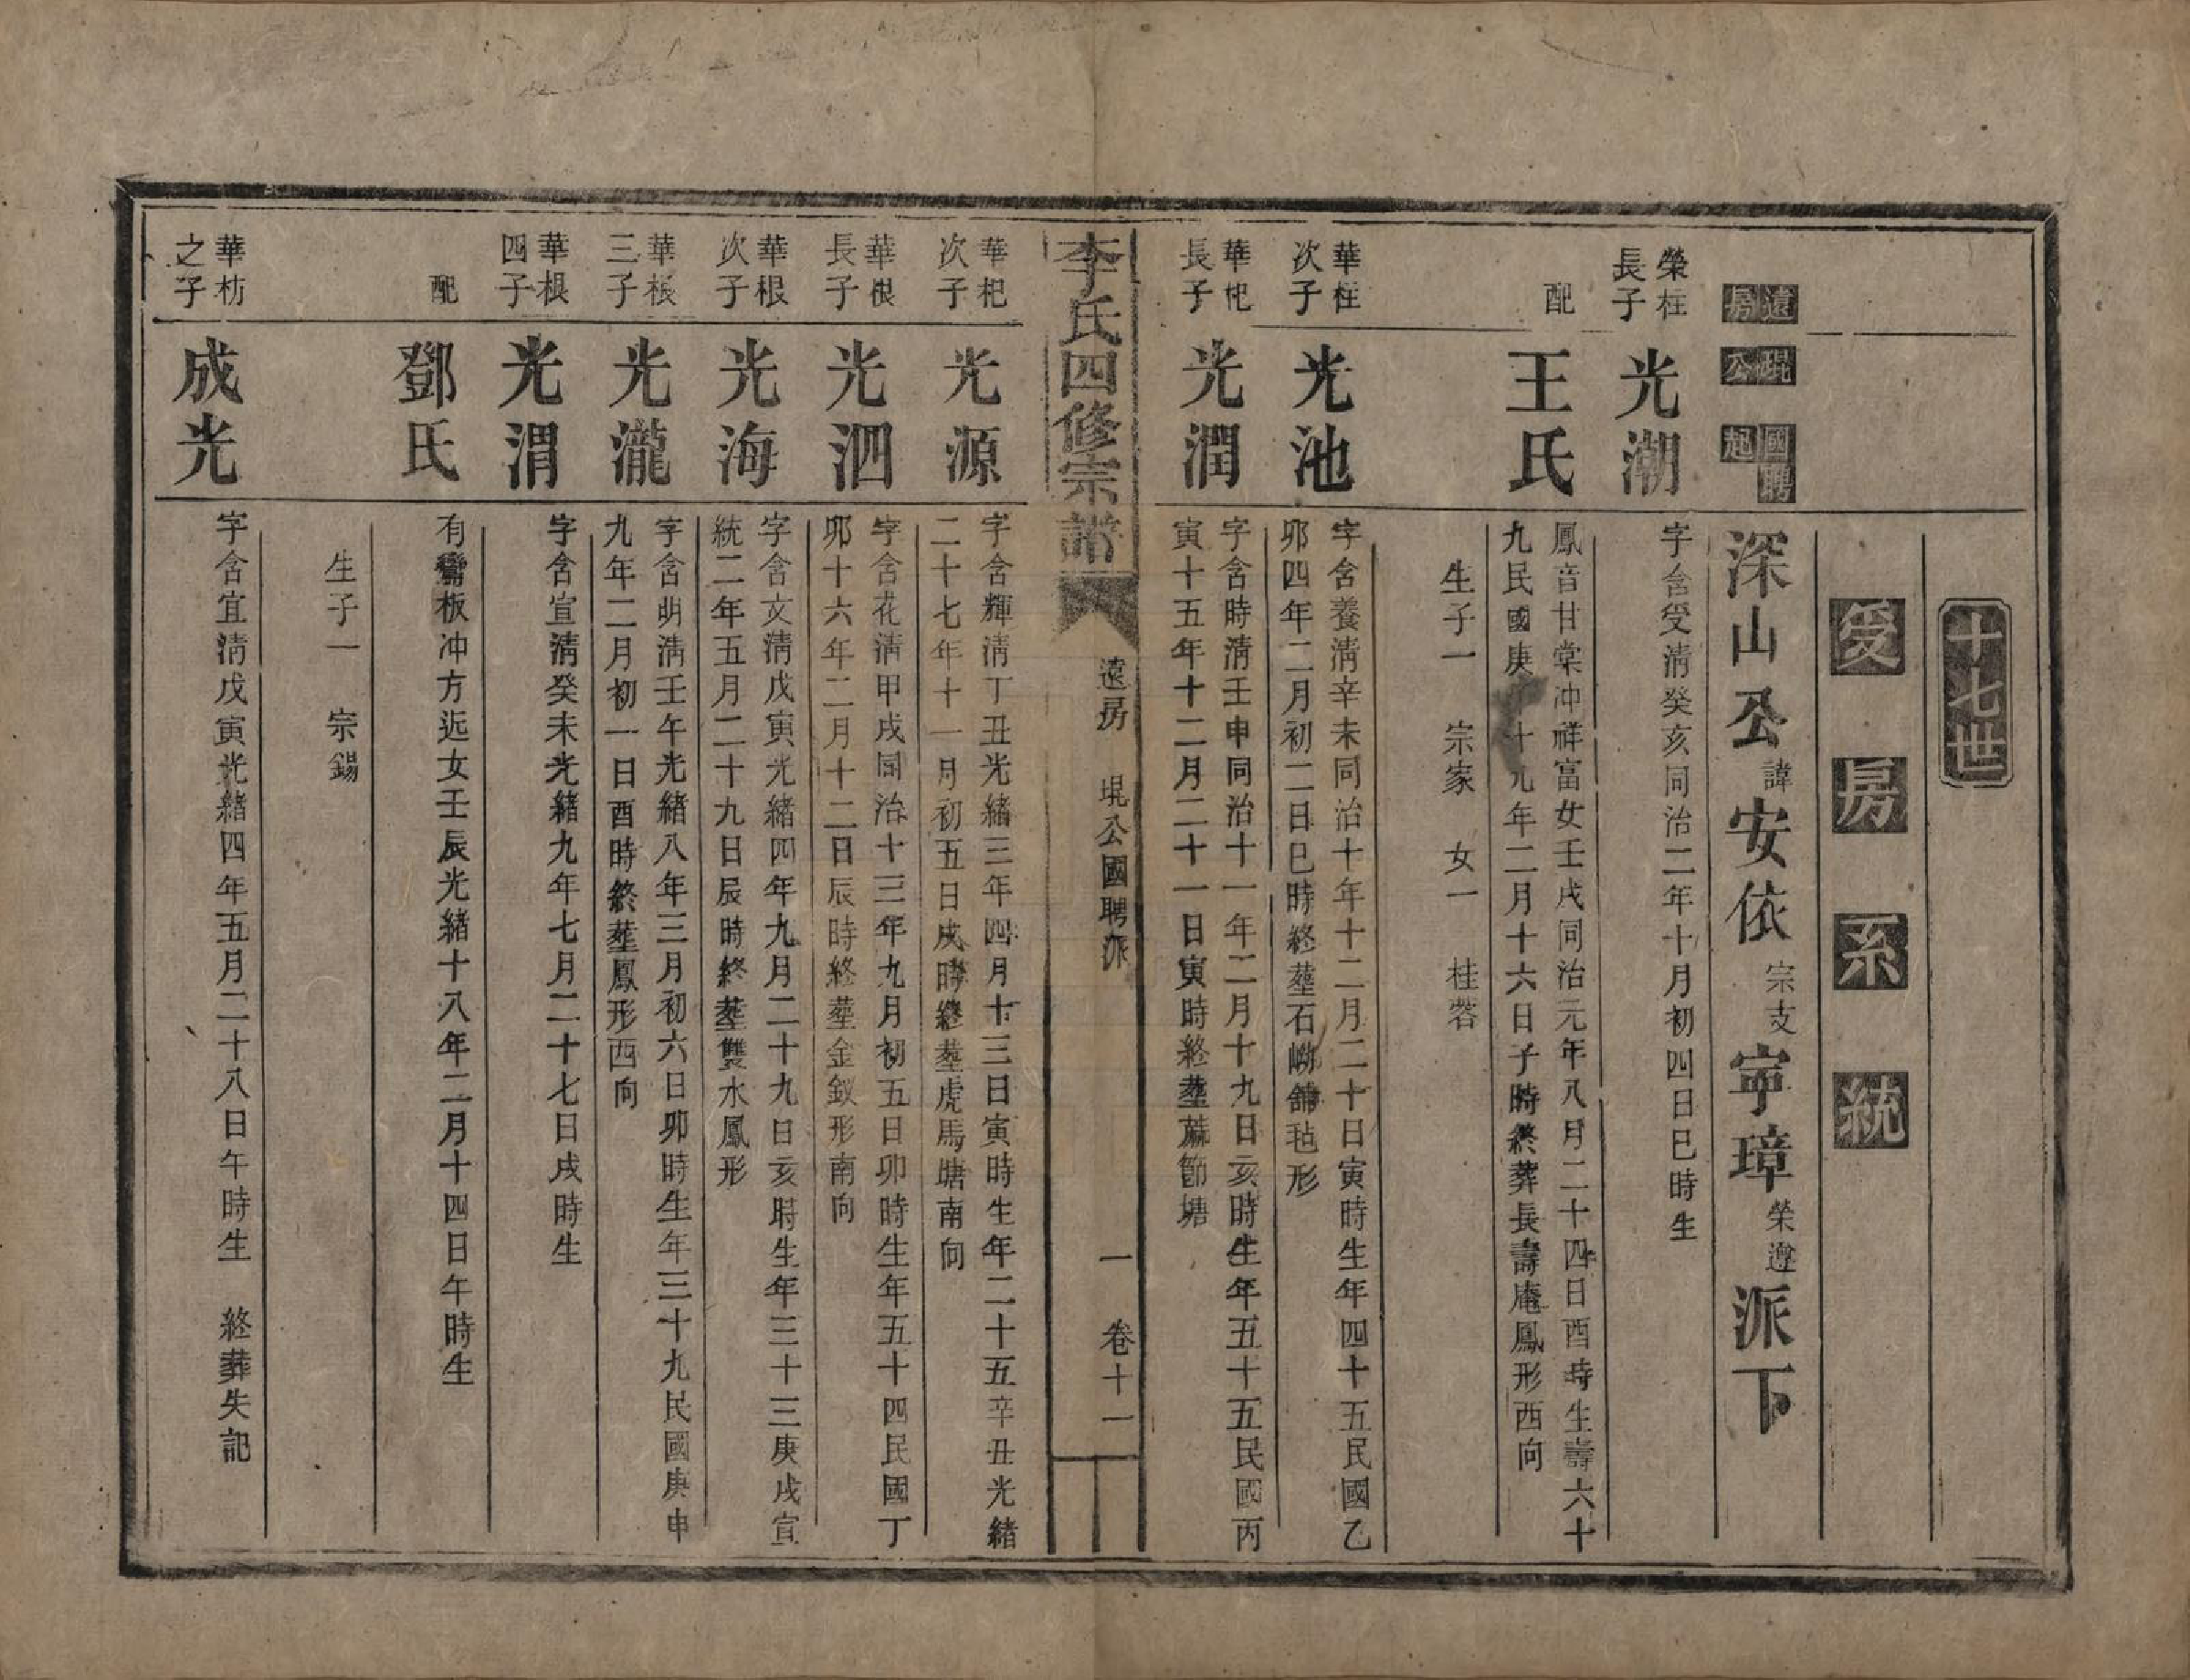 十七世
受房系統
遠房
琨公
國聘起
深山公諱安依宗支寜璋榮遵派下
榮枉長子
光潮
字含受淸癸亥同治二年十月初四日巳時生
配
王氏
鳳音甘棠冲祥富女壬戌同治元年八月二十四日酉時生壽六十
九民國庚 十九年二月十六日子時終葬長壽庵鳳形西向
生子一 宗家 女一 桂蓉
華枉次子
光池
字含養淸辛未同治十年十二月二十日寅時生年四十五民國乙
卯四年二月初二日巳時終塟石嶺舖毡形
華杞長子
光潤
字含時淸壬申同治十一年二月十九日亥時生年五十五民國丙
寅十五年十二月二十一日寅時終塟蔴節塘
李氏四修宗譜
遠房 琨公國聘派
一
卷十一
華杞次子
光源
字含輝淸丁丑光緒三年四月十三日寅時生年二十五辛丑光緒
二十七年十一月初五日戌時終塟虎馬塘南向
華根長子
光泗
字含花淸甲戌同治十三年九月初五日卯時生年五十四民國丁
卯十六年二月十二日辰時終塟金釵形南向
華根次子
光海
字含文淸戊寅光緒四年九月二十九日亥時生年三十三庚戌宣
統二年五月二十九日辰時終塟雙水鳳形
華根三子
光瀧
字含明淸壬午光緒八年三月初六日卯時生年三十九民國庚申
九年二月初一日酉時終塟鳳形西向
華根四子
光渭
字含宣淸癸未光緒九年七月二十七日戌時生
配
鄧氏
有鸞板冲方近女壬辰光緒十八年二月十四日午時生
生子一 宗錫
華枋之子
成光
字含宜淸戊寅光緒四年五月二十八日午時生 終葬失記